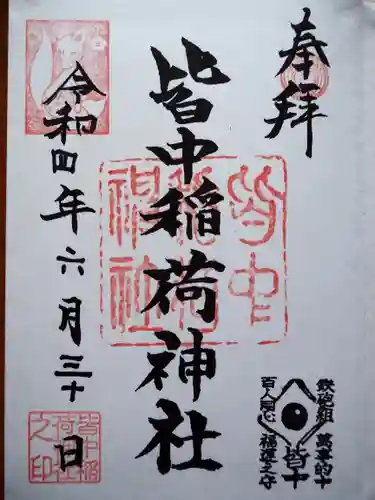 奉拝
皆中稲荷神社
令和四年六月三十日
皆中稲荷神社
皆中稲荷社之印
鉄砲組
百人同心
萬事的中
福運之守
皆中